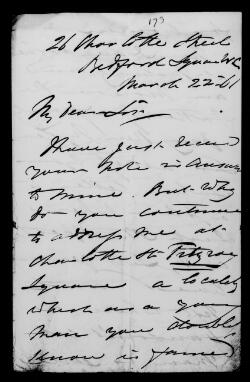 173
26 Charlotte Street
Bedford Square W.C.
March 22 - 61
My Dear Sir
I have just received
your note in answer
to mine. But why
do you continue
to address me at
Charlotte St Fitzroy
Square a locality
which as a young
man you doubtless
know is famed